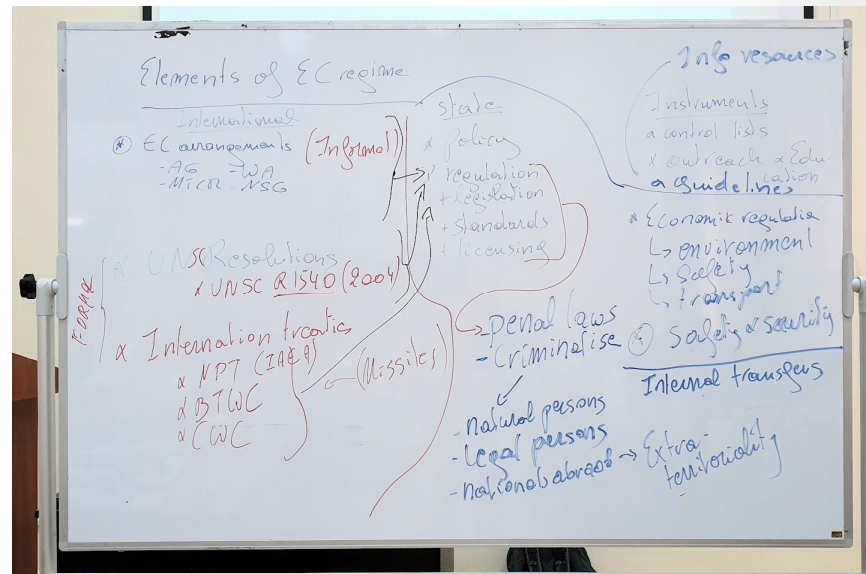 Elements of EC regime
International
* EC arrangements (Informal)
- AG - WA
- MTCR - NSG
* UNSC Resolutions
* UNSC R1540 (2004)
FORMAL
* Internation treaties
* NPT (IAEA)
* BTWC
* CWC
(Missiles)
state
* policy
* regulation
+ legislation
+ standards
+ licensing
- penal laws
- Criminalise
- natural persons
- legal persons
- nationals abroad → Extra-
territoriality
Info resources
Instruments
* control lists
* outreach & Edu-
cation
* guidelines
* Economic regulatio
↳ environment
↳ safety
↳ transport
* Safety & security
Internal transfers